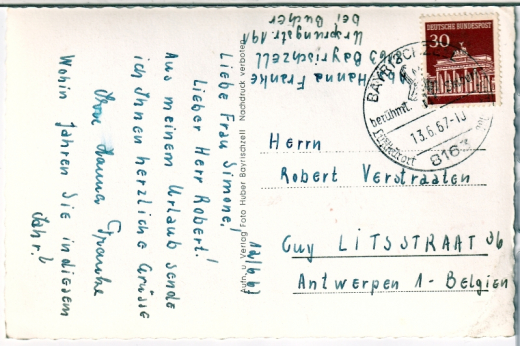 Hanna Franke
8163 Bayrischzell
Ursprungstr. 191
bei Bucher
DEUTSCHE BUNDESPOST
30
BAYRISCHZELL
berühmt
13.6.67-10
8163
Aufn. u. Verlag Foto Huber Bayrischzell Nachdruck verboten
12/6 67
Liebe Frau Simone!
Lieber Herr Robert!
Aus meinem Urlaub sende
ich Ihnen herzliche Grüsse
Ihre Hanna Franke
Wohin fahren Sie in diesem
Jahr?
Herrn
Robert Verstraaten
Guy LITSSTRAAT 36
Antwerpen 1 - Belgien